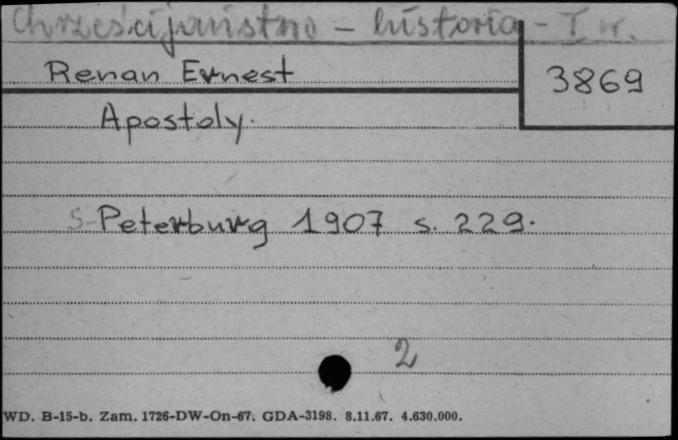 Chrześcijaństwo - historia - I w.
Renan Ernest
3869
Apostoly.
S-Peterburg 1907 s. 229.
2
WD. B-15-b. Zam. 1726-DW-On-67. GDA-3198. 8.11.67. 4.630.000.